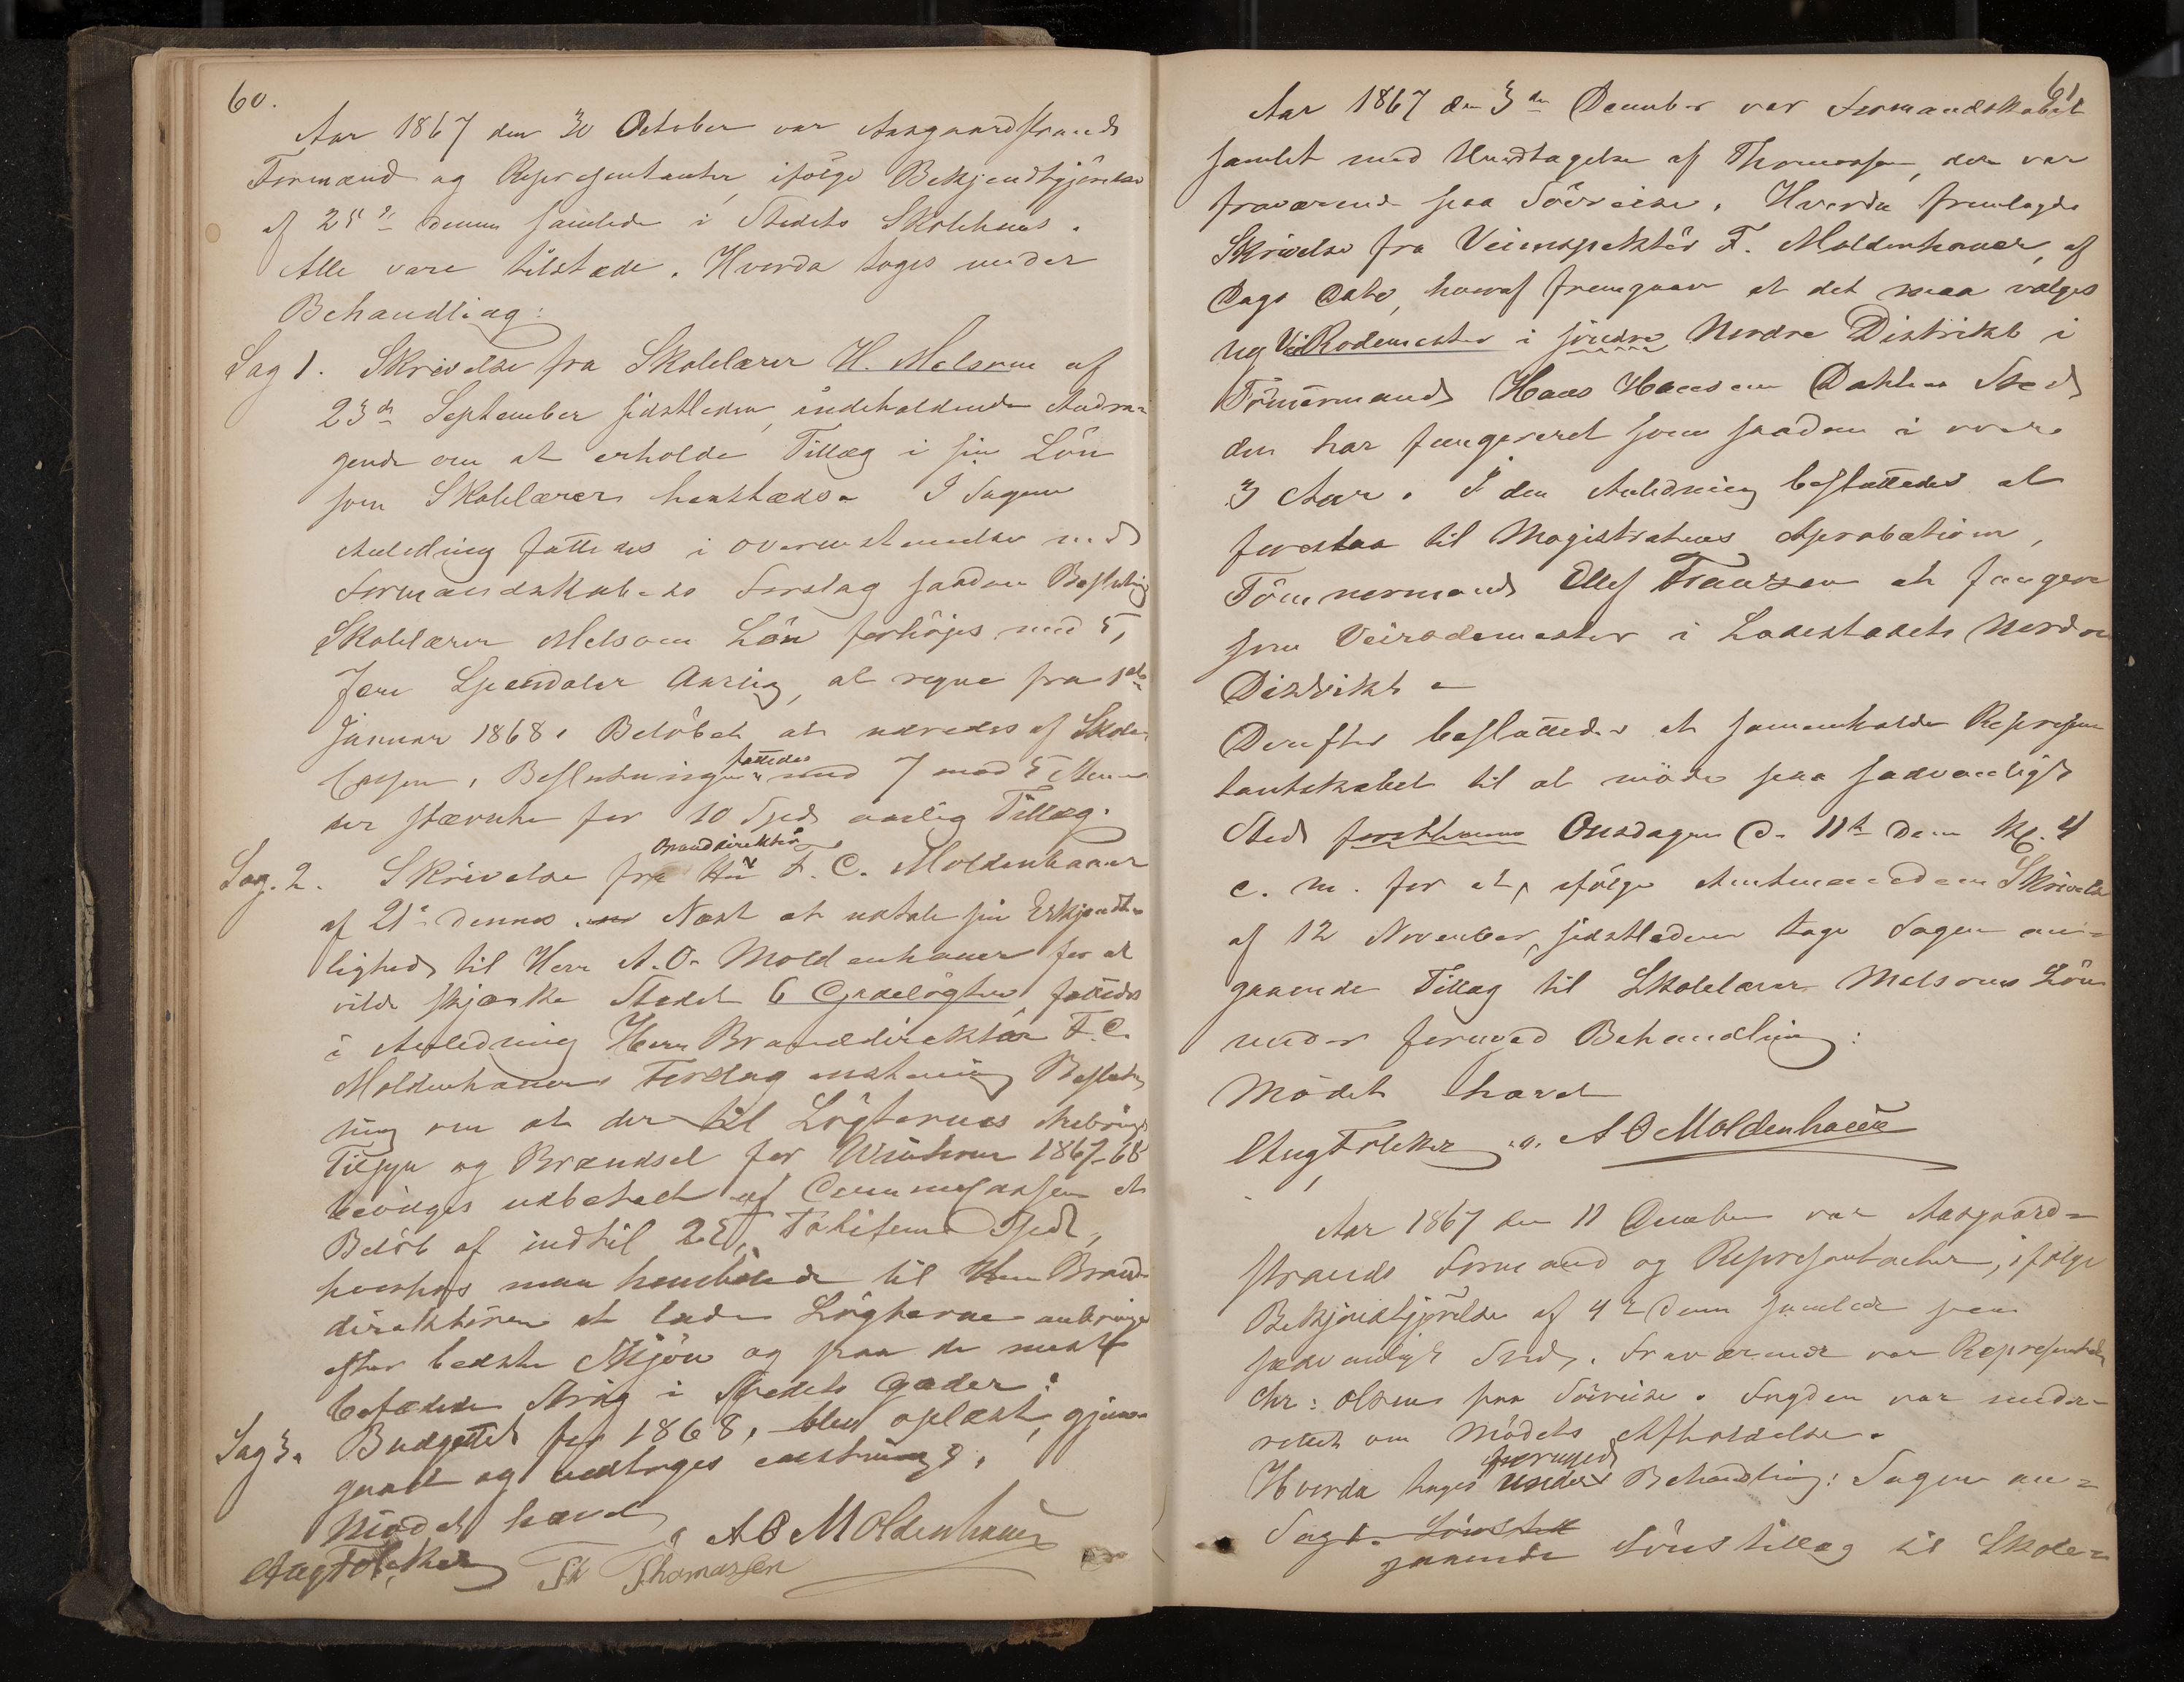 60.
Aar 1867 den 30 October var Aasgaardstrands
Formænd og Repræsentanter, ifölge Bekjendtgjörelse
af 25de dennes samlede i Stedets Skolehuus.
Alle vare tilstæde. Hvorda toges under
Behandling:
Sag 1. Skrivelse fra Skolelærer H. Melsom af
23de September sidstleden, indeholdende Andra-
gende om at erholde Tillæg i sin Lön
som Skolelærer I Sagens
Anledning fattedes i Overensstemmelse med
Formandskabets Forslag saadan Beslutning
Skolelærer Melsoms Lön forhöjes med 5,
fem Speciedaler Aarlig, at regne fra 1ste
Januar 1868. Belöbet at udredes af Skole-
Cassen. Beslutningen fattedes med 7 mod 5 Stem-
mer for 10 Spd. aarlig Tillæg.
Sag. 2. Skrivelse fra Hr Branddirektör F. C. Moldenhauer
af 21de dennes. Næst at udtale sin Erkjendt-
lighed til Herr A. O. Moldenhauer for at
vilde skjænke Stedet 6 Gadelögter fattedes
i Anledning Herr Branddirektör F. C.
Moldenhauers Forslag enstemig Beslut-
ning om at der til Lögternes Anbringelse
Tilsyn og Brændsel for Winteren 1867-68
bevilges udbetalt af Communecassen et
Belöb af indtil 25,
man henstillede til Herr Brand-
direktören at lade Lögterne anbringe
efter bedste Skjön og paa de mest
befærdede Strög i Stedets Gader.
Sag 3. Budgettet for 1868, blev oplæst, gjennem-
gaaet og vedtoges enstemigt.
Mödet hævet
Aug Fölsker Th Thomassen A O Moldenhauer
61
Aar 1867 den 3de December var Formandskabet
samlet med Undtagelse af Thomassen, der var
fraværende paa Söreise. Hvorda fremlagdes
Skrivelse fra Veiinspektör F. Moldenhauer, af
Dags Dato, hvoraf fremgaar at det maa vælges
ny VeiRodemester i söndre Nordre Distrikt i
Tömmermand Hans Hansen Dahlen Sted
der har fungeret som saadan i over
3 Aar. I den Anledning besluttedes at
foreslaa til Magistratens Aprobation,
Tömmermand Ellef Franzen at fungere
som Veirodemester i Ladestedets Nordre
Distrikt
Derefter besluttedes at sammenkalde Repræsen
tantskabet til at möde paa sædvanligt
Sted Onsdagen d. 11te dennes Kl. 4
e. M. for at, ifölge Amtmandens Skrivelse
af 12 November sidstleden tage Sagen an-
gaaende Tillæg til Skolelærer Melsoms Lön
under fornyed Behandling:
Mödet hævet
Aug Fölsker A O Moldenhauer
Aar 1867 den 11 December var Aasgaard-
strands Formænd og Repræsentanter, ifölge
Bekjendtgjörelse af 4de dennes samlede paa
sædvanligt Sted. Fraværende var Repræsentant
Chr: Olsen paa Söreise. Fogden var under-
rettet om Mödets Afholdelse.
Hvorda toges under fornyed Behandling: Sagen an-
Sag 1. Lönstill
gaaende Lönstillæg til Skole-